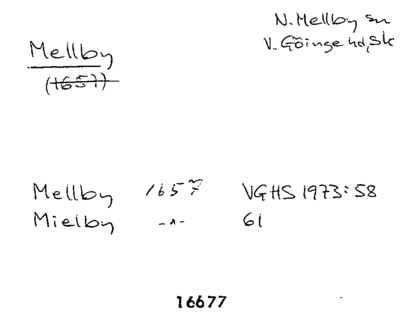 N. Mellby sn
V. Göinge hd, Sk
Mellby
(1657)
Mellby 1657 VGHS 1973:58
Mielby -"- 61
16677